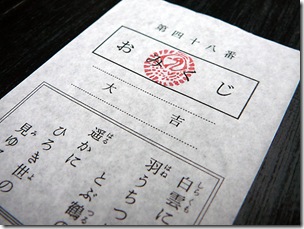 第四十八番
おみくじ
大吉
白雲に
しらくも
羽うちつ
はね
とぶ鶴の
つる
遥かに
はる
ひろき世の
見ゆ
み